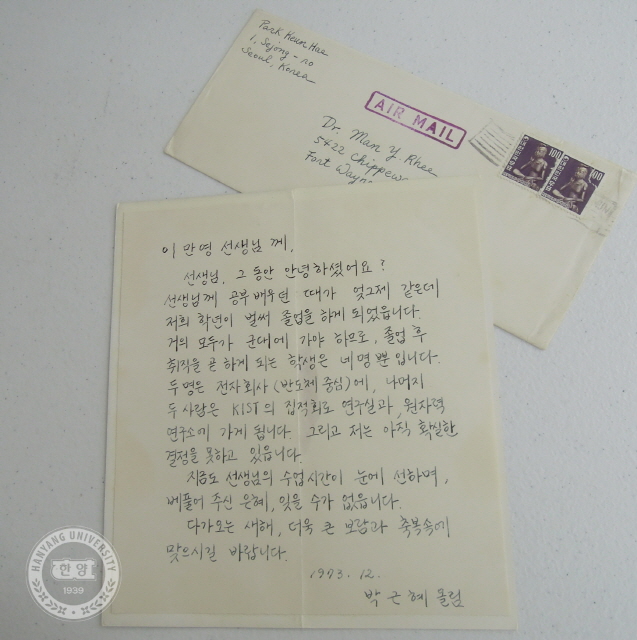 Park Keun Hae
1, Sejong-ro
Seoul, Korea
AIR MAIL
Dr. Man Y. Rhee
5422 Chippewa
Fort Wayn
100
100
이 만영 선생님 께,
선생님, 그 동안 안녕하셨어요?
선생님께 공부 배우던 때가 엊그제 같은데
저희 학년이 벌써 졸업을 하게 되었읍니다.
거의 모두가 군대에 가야 하므로, 졸업 후
취직을 곧 하게 되는 학생은 네명 뿐 입니다.
두명은 전자회사 (반도체 중심)에, 나머지
두사람은 KIST의 집적회로 연구실과, 원자력
연구소에 가게 됩니다. 그리고 저는 아직 확실한
결정을 못하고 있읍니다.
지금도 선생님의 수업시간이 눈에 선하며,
베풀어 주신 은혜, 잊을 수가 없읍니다.
다가오는 새해, 더욱 큰 보람과 축복속에
맞으시길 바랍니다.
1973. 12.
박 근 혜 올림
HANYANG UNIVERSITY
한양
1939